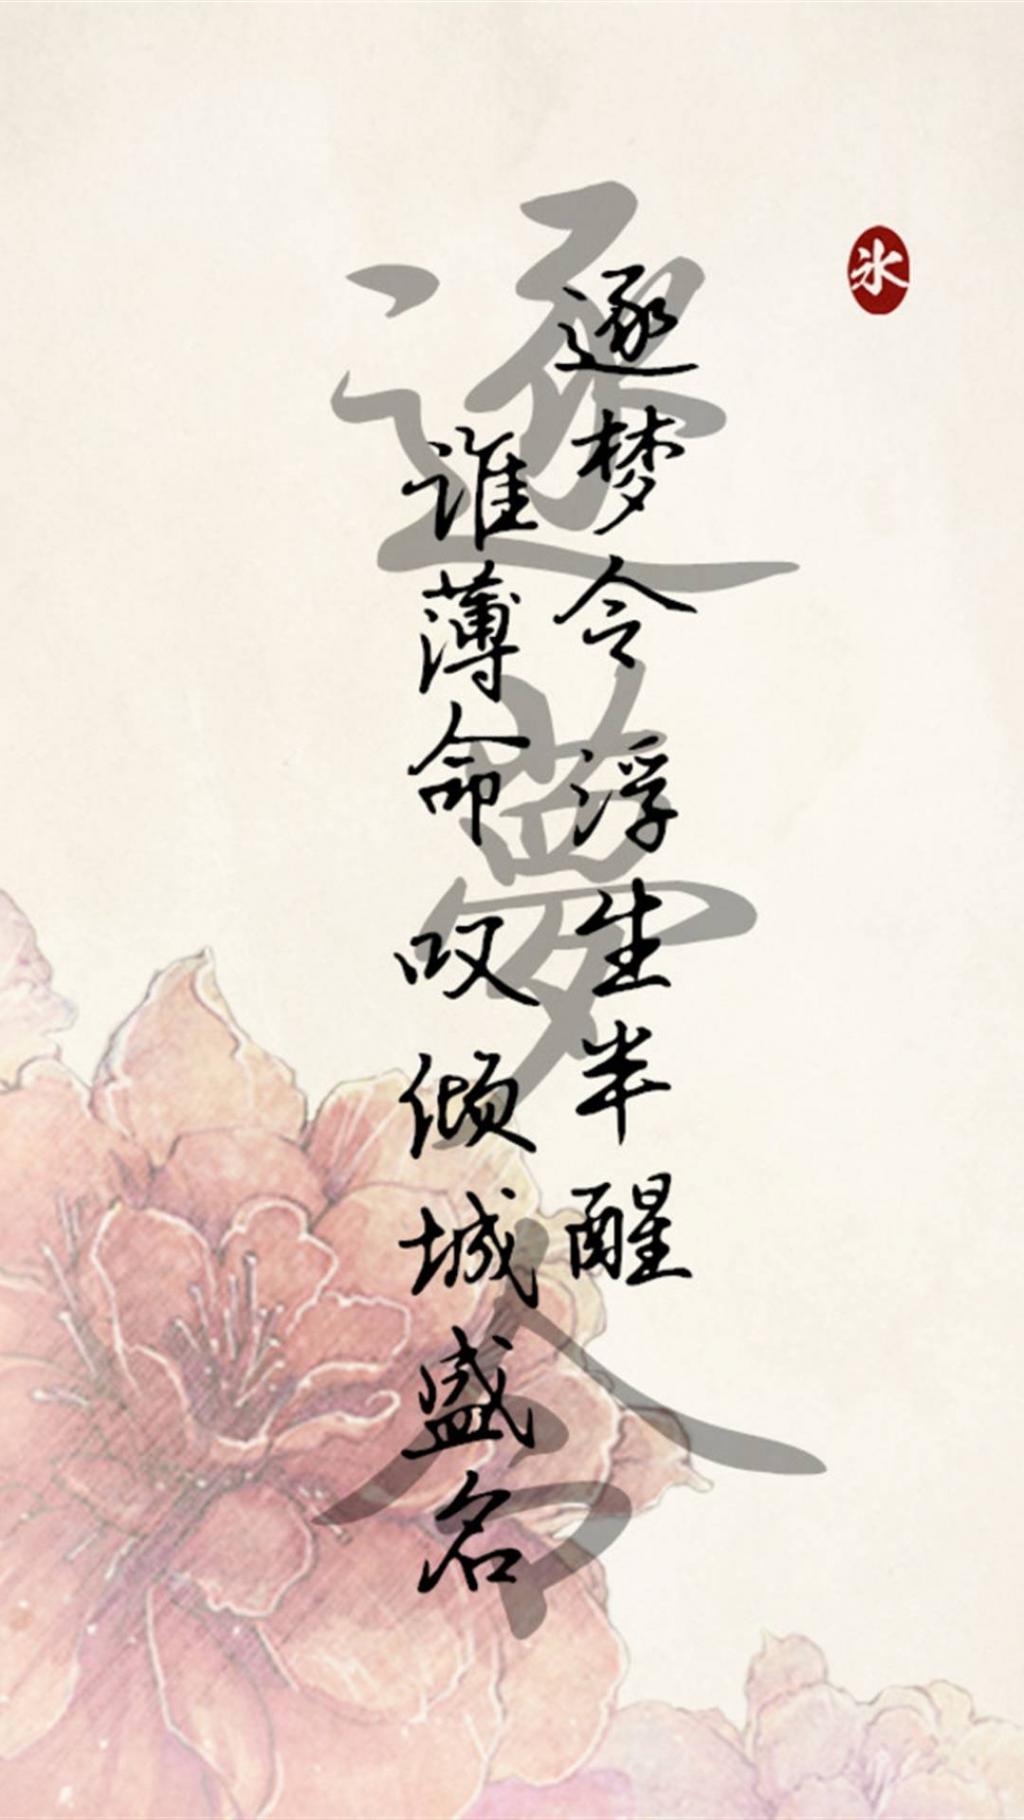 逐梦令
逐梦令 浮生半醒
谁薄命 叹倾城盛名
氷